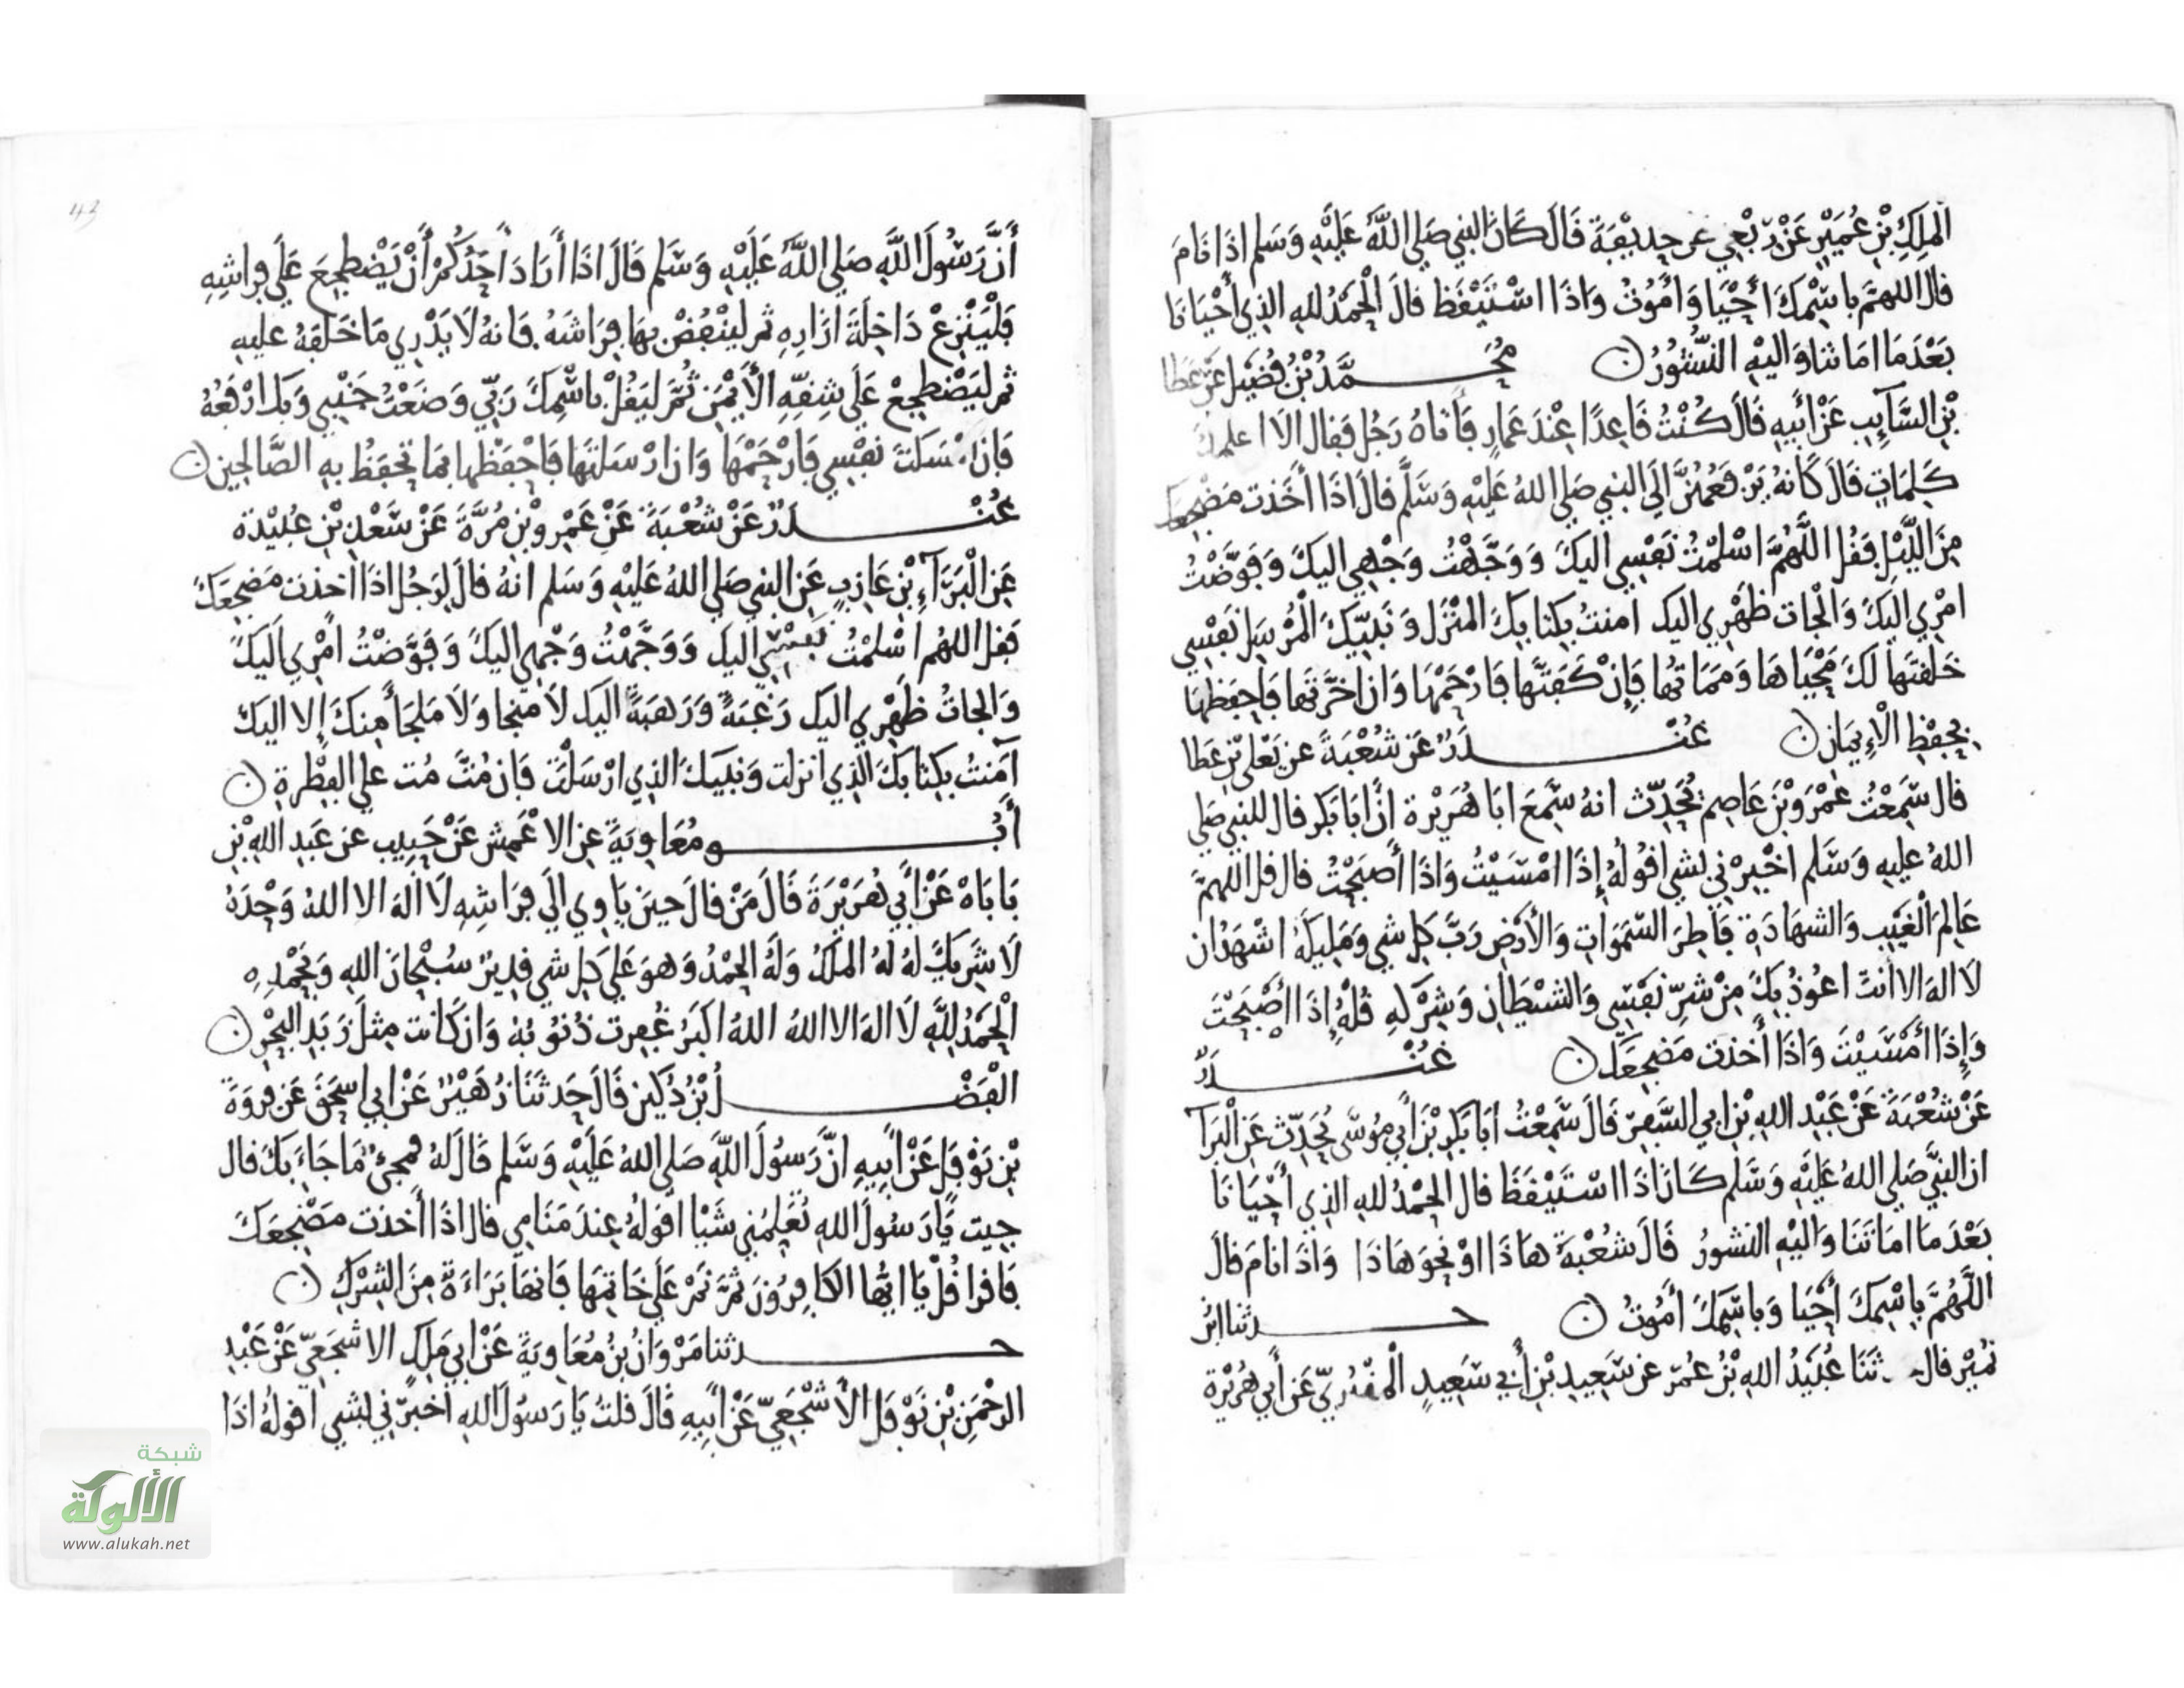 الملِكِ بْنِ عُمَيْرٍ عَنْ رِبْعِي عن حذيفَةَ قَالَ كَانَ النبي صَلي اللَّه عَلَيْهِ وَسَلم اذَا نَامَ
قال اللهمَّ باسْمكَ أحْيَا وَامُوتُ وَاذَا اسْتَيْقَظ قالَ الْحَمْدُ للهِ الذِي أحْيَانَا
بَعْدَمَا امَاتنَا وَاليْهِ النُّشُورُ ن مُحَمَّدُ بْنُ فُضَيْل عَنْ عَطا
بْنِ السَّآئِبِ عَنْ أبِيهِ قَالَ كُنْتُ قَاعِدًا عِنْدَ عَمَارٍ فَأتَاهُ رَجُل فقال الاَ اعلمكَ
كَلِمَاتٍ قَالَ كَانهُ يَرْفَعُهُنَّ الَى النبي صَلي اللهُ عَلَيْهِ وَسَلَّم قالَ اذَا أخَذت مَضْجعكَ
مِنَ اللَّيْلِ فَقُل اللَّهُمَّ اسْلمْتُ نَفْسِي اليكَ وَوَجَّهْتُ وَجْهِي اليكَ وَفَوَّضْتُ
امْرِي اليكَ وَالْجات ظَهْرِي اليك امنتُ بكتابكَ المنْزَل وَنَبِيّكَ الْمُرْسَل نَفْسِي
خَلقتَهَا لَكَ مَحْيَاهَا وَمَمَاتهَا فَإنْ كَفَتَّهَا فَارْحَمْهَا وَان اخَّرْتهَا فَاحفَظهَا
بِحِفْظِ الْإيمَانِ ن غُنْدَرٌ عَن شُعْبَةَ عَن يَعْلى بْنِ عَطا
قال سَمِعْتُ عَمْرَو بْنَ عَاصِم يُحَدِّث انهُ سَمِعَ ابَا هُرَيْرة انَّ ابَا بَكر قال للنبي صَلي
اللهُ عليهِ وَسَلم اخْبِرْني بشي اقُولُهُ إذَا امْسَيْتُ وَاذَا أصْبَحْتُ قال قل اللهمَّ
عَالِمَ الْغَيْبِ وَالشهَادَةِ فَاطِرَ السَّمَوَاتِ وَالأرْضِ رَبَّ كل شي وَمَلِيكَهُ اشهَدُ ان
لاَ الهَ الا انتَ اعُوذُ بِكَ مِنْ شَرِّ نَفْسِي وَالشيْطَانِ وَشِرْكهِ قُلْهُ إذَا أصْبَحْتَ
وَإذَا أمْسَيْتَ وَاذَا أخذت مَضجعَكَ ن غُنْدَرٌ
عَنْ شُعْبَةَ عَنْ عَبْدِ اللهِ بْنِ ابي السَّفِرِ قَالَ سَمِعْتُ أبَا بَكْرِ بْنَ أبي مُوسَى يُحَدِّث عَنِ الْبَرَآ
ان النبيَّ صَلي اللهُ عَلَيْهِ وَسَلم كَانَ اذَا اسْتَيْقَظَ قال الحمْدُ للهِ الذِي أحْيَانَا
بَعْدَمَا امَاتَنَا وَاليْهِ النشورُ قَالَ شُعْبَةُ هَاذَا اوْ نحوَ هَاذَا وَاذَا نامَ قالَ
اللَّهُمَّ بِاسْمِكَ أحْيَا وَبِاسْمِكَ أمُوتُ ن حدثنا ابْنُ
نُمَيْرٍ قال ثَنَا عُبَيْدُ اللهِ بْنُ عُمَرَ عن سَعِيدِ بْنِ أبي سَعِيدٍ الْمقبُرِيّ عَن أبي هُرَيْرة
أنَّ رَسُولَ اللَّهِ صَلي اللَّهُ عَلَيْهِ وَسَلم قَالَ اذَا أرَادَ احَدُكُمْ أنْ يَضْطجعَ عَلَى فراشِهِ
فَلْيَنْزِعْ دَاخِلَةَ ازَارِهِ ثم ليَنْفُضْ بهَا فِرَاشَهُ فَانهُ لاَ يَدْرِي مَا خَلَفهُ عليهِ
ثم ليَضْطجعْ عَلَى شِقِّهِ الأيْمَنِ ثُمَّ ليَقُلْ باسْمِكَ رَبِّي وَضَعْتُ جَنْبِي وَبكَ ارْفَعُهُ
فَان امْسَكتَ نفْسِي فَارْحَمْهَا وَان ارْسَلتهَا فَاحْفَظهَا بِمَا تحفَظُ بِهِ الصَّالحِينَ ن
غُنْدَرٌ عَنْ شُعْبَةَ عَنْ عَمْرِو بْنِ مُرَّةَ عَنْ سَعْدِ بْنِ عُبَيْدة
عَنِ الْبَرَآءِ بْنِ عَازِبٍ عَنِ النبي صَلي اللهُ عَلَيْهِ وَسَلم انهُ قالَ لِرَجُل اذَا اخذت مَضجعَكَ
فَقل اللهُم أسْلمْتُ نَفْسِي اليكَ وَوَجَّهْتُ وَجْهِي اليكَ وَفَوَّضْتُ امْرِي اليكَ
وَالجاتُ ظَهْرِي اليكَ رَغْبَةً وَرَهبَةً اليك لاَ مَنجا وَلاَ مَلجأَ مِنكَ إلا اليكَ
آمَنتُ بكِتابكَ الَّذِي انزلت وَنبيكَ الذِي ارْسَلْتَ فَان مُتَّ مُت علي الفِطْرةِ ن
أبُو مُعَاوِيَةَ عن الاعْمِشِ عَنْ حَبِيبٍ عن عَبدِ اللهِ بْنِ
بَابَاهْ عَنْ أبي هُرَيْرَةَ قَالَ مَنْ قالَ حِينَ يَاوِي الَي فِرَاشِهِ لاَ الهَ الا اللهُ وَحْدَهُ
لاَ شَرِيكَ لهُ لهُ الملكُ وَلَهُ الحمْدُ وَهوَ عَلَى كل شي قدِيرٌ سُبْحَانَ اللهِ وَبحمْدِهِ
الْحَمْدُ لِلَّهِ لاَ الهَ الا اللهُ اللهُ اكبَرُ غُفِرت ذُنُوبُهُ وَان كَانت مِثلَ زَبَدِ البَحْرِ ن
الْفَضْلُ بْنُ دُكَين قَالَ حَدثَنَا زُهَيْرٌ عَنْ ابي اسحَقَ عَن فروَةَ
بْنِ نَوْفَلٍ عَنْ أبِيهِ انَّ رَسُولَ اللَّهِ صَلي اللهُ عَلَيْهِ وَسَلم قَالَ لهُ فمجئٌ مَا جَاءَ بكَ قال
جيت يَا رَسُولَ اللهِ تُعَلِّمُني شَيْا اقولهُ عِندَ مَنَامِي قال اذَا أخذت مَضْجعَكَ
فَاقرا قُلْ يَا ايُّها الكَافِرُونَ ثمَّ نَمْ عَلَى خَاتِمتها فَانهَا بَرَاءَةٌ مِنَ الشِرْكِ ن
حدثنا مَرْوَانُ بْنُ مُعَاوِيَةَ عَنْ ابي مَلِكٍ الاشجَعِيّ عَنْ عَبْدِ
الرحْمَنِ بْنِ نَوْفَل الأشْجَعِيّ عَنْ أبِيهِ قَالَ قلتُ يَا رَسُولَ اللهِ أخبِرْني بشي اقولهُ اذَا
43
شبكة
الألوكة
www.alukah.net